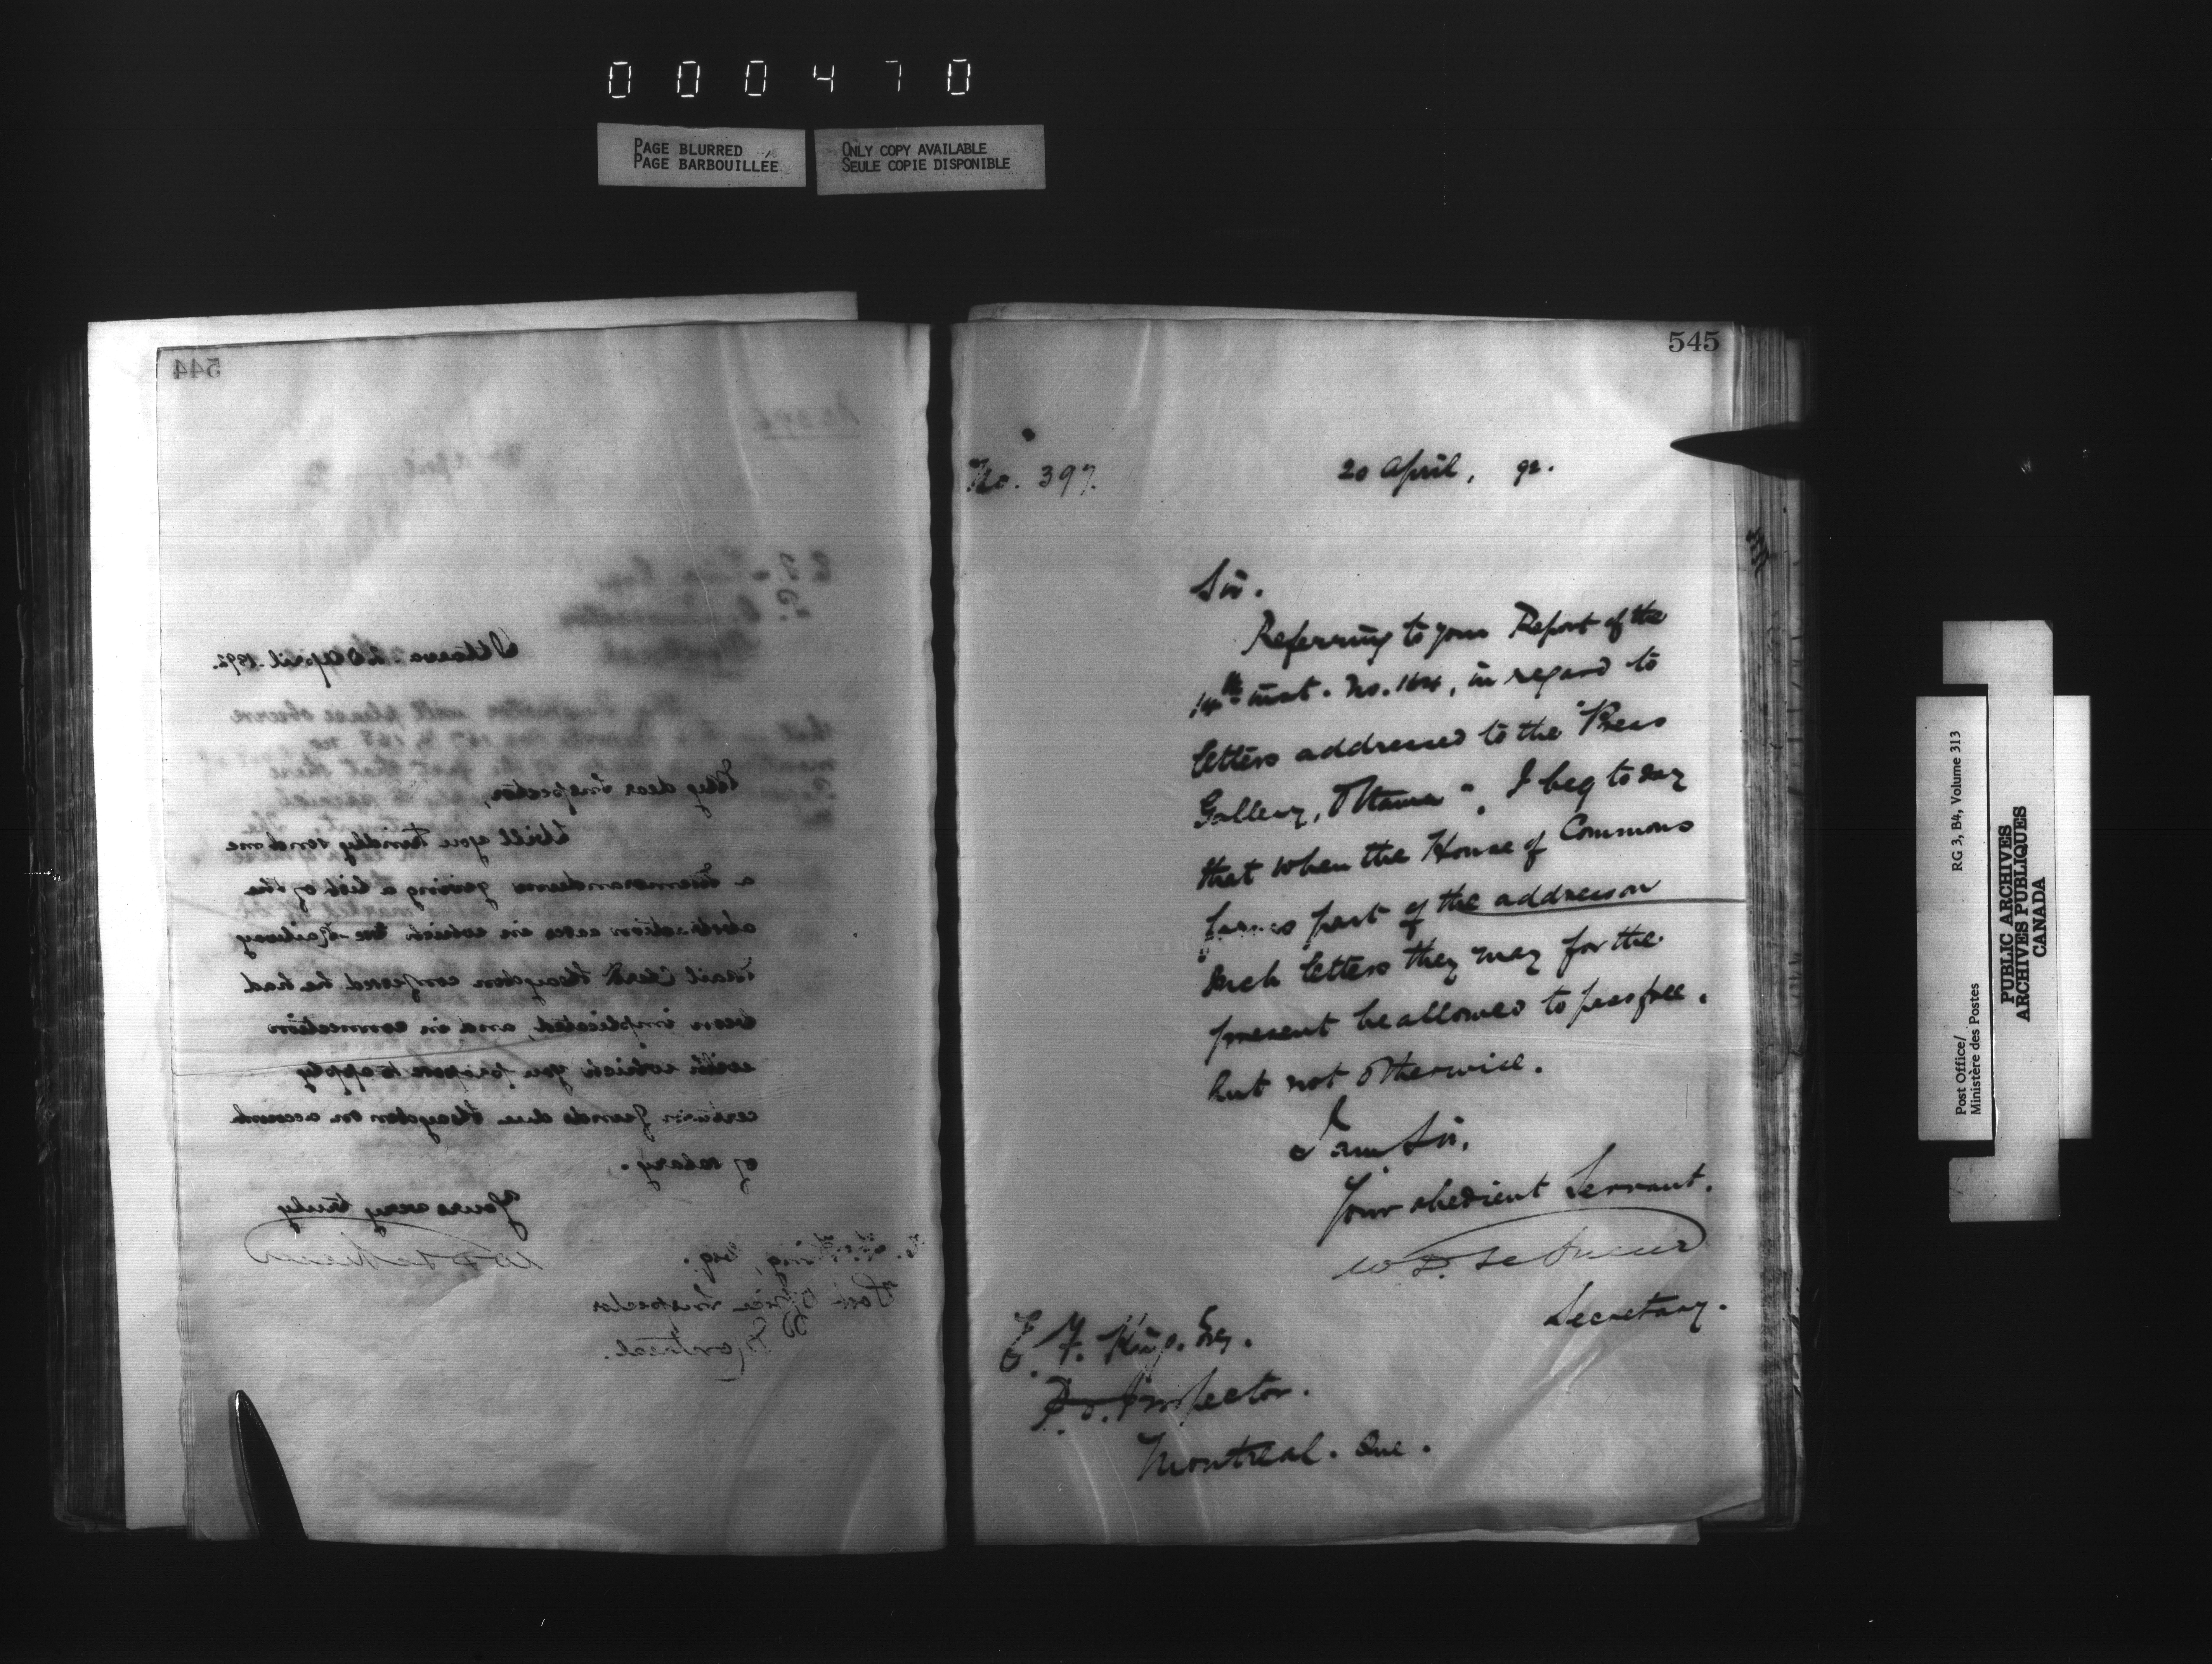 000470
PAGE BLURRED
PAGE BARBOUILLÉE
ONLY COPY AVAILABLE
SEULE COPIE DISPONIBLE
544
Ottawa 20 April 1892.
My dear Inspector,
Will you kindly send me
a memorandum giving a list of the
abstraction cases in which the Railway
Mail Clerk confessed he had
been implicated, and in connection
with which you propose to apply
certain funds due on account
of salary.
Yours very truly
W D LeSueur
King, Esq.
Post Office Inspector
Montreal.
545
No. 397.
20 April, 92.
Sir.
Referring to your Report of the
14th inst. No. 164, in regard to
letters addressed to the "Press
Gallery, Ottawa", I beg to say
that when the House of Commons
forms part of the address on
such letters they may for the
present be allowed to pass free,
but not otherwise.
I am Sir,
Your obedient Servant.
W. D. LeSueur
Secretary.
E. F. King. Esq.
P.O. Inspector.
Montreal. Que.
Post Office/
Ministère des Postes
RG 3, B4, Volume 313
PUBLIC ARCHIVES
ARCHIVES PUBLIQUES
CANADA